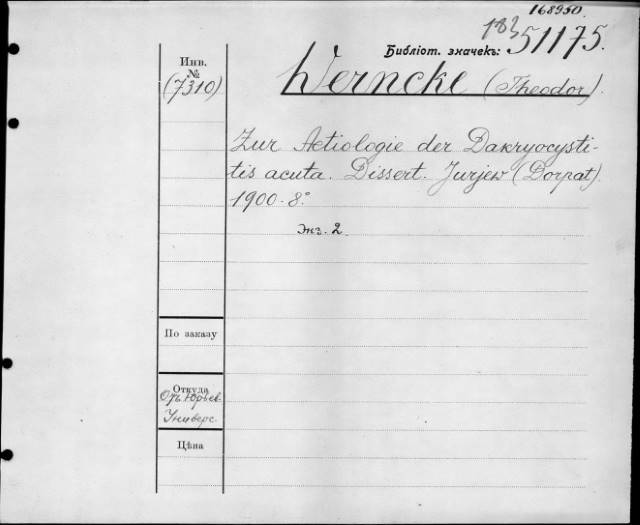 168950.
183
Библіот. значекъ: 51175.
Инв.
№
(7310)
Werncke (Theodor).
Zur Aetiologie der Dakryocysti-
tis acuta. Dissert. Jurjew (Dorpat).
1900. 8°
Экз. 2
По заказу
Откуда
Отъ Юрьев.
Универс.
Цѣна